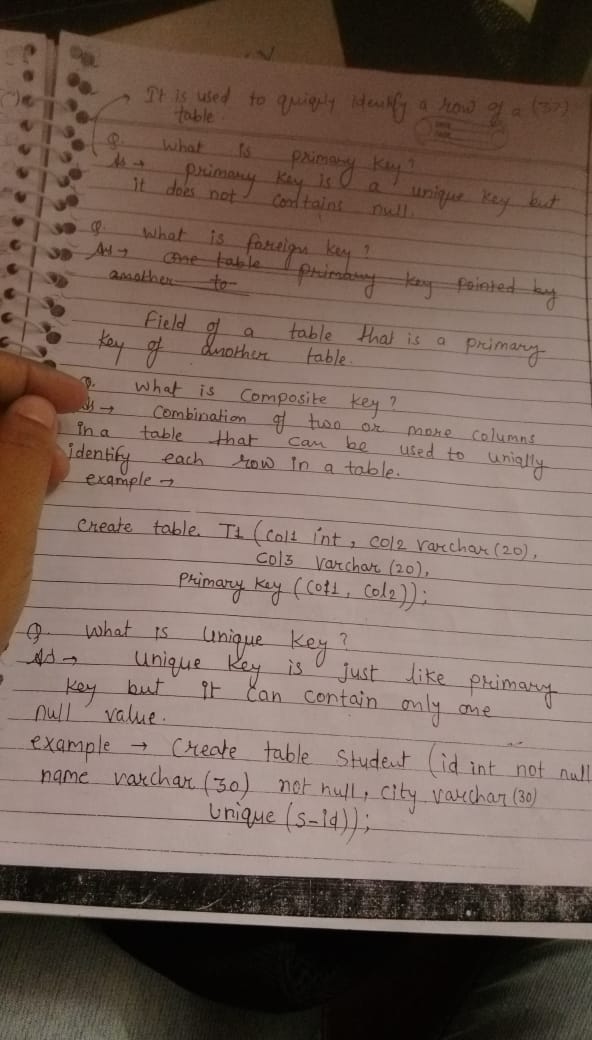 → It is used to quiqely identify a row of a (37)
table.
Q. What is primary key?
As → primary key is a unique key but
it does not contains null.
Q. What is foreign key?
As → one table primary key pointed by
another to
Field of a table that is a primary
key of another table.
Q. What is Composite key?
As → Combination of two or more columns
in a table that can be used to unially
identify each row in a table.
example →
Create table. T1 (Col1 int, Col2 varchar(20),
Col3 varchar (20),
Primary key (Col1, Col2));
Q. What is Unique key?
As → Unique key is just like primary
key but it can contain only one
null value.
example → Create table Student (id int not null
name varchar (30) not null, city varchar (30)
Unique (s-id));